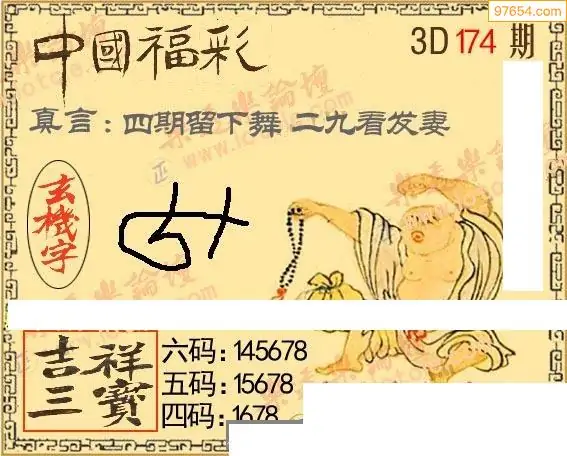 97654.com
中國福彩
3D 174 期
真言：四期留下舞 二九看发妻
玄機字
吉祥三寶
六码：145678
五码：15678
四码：1678